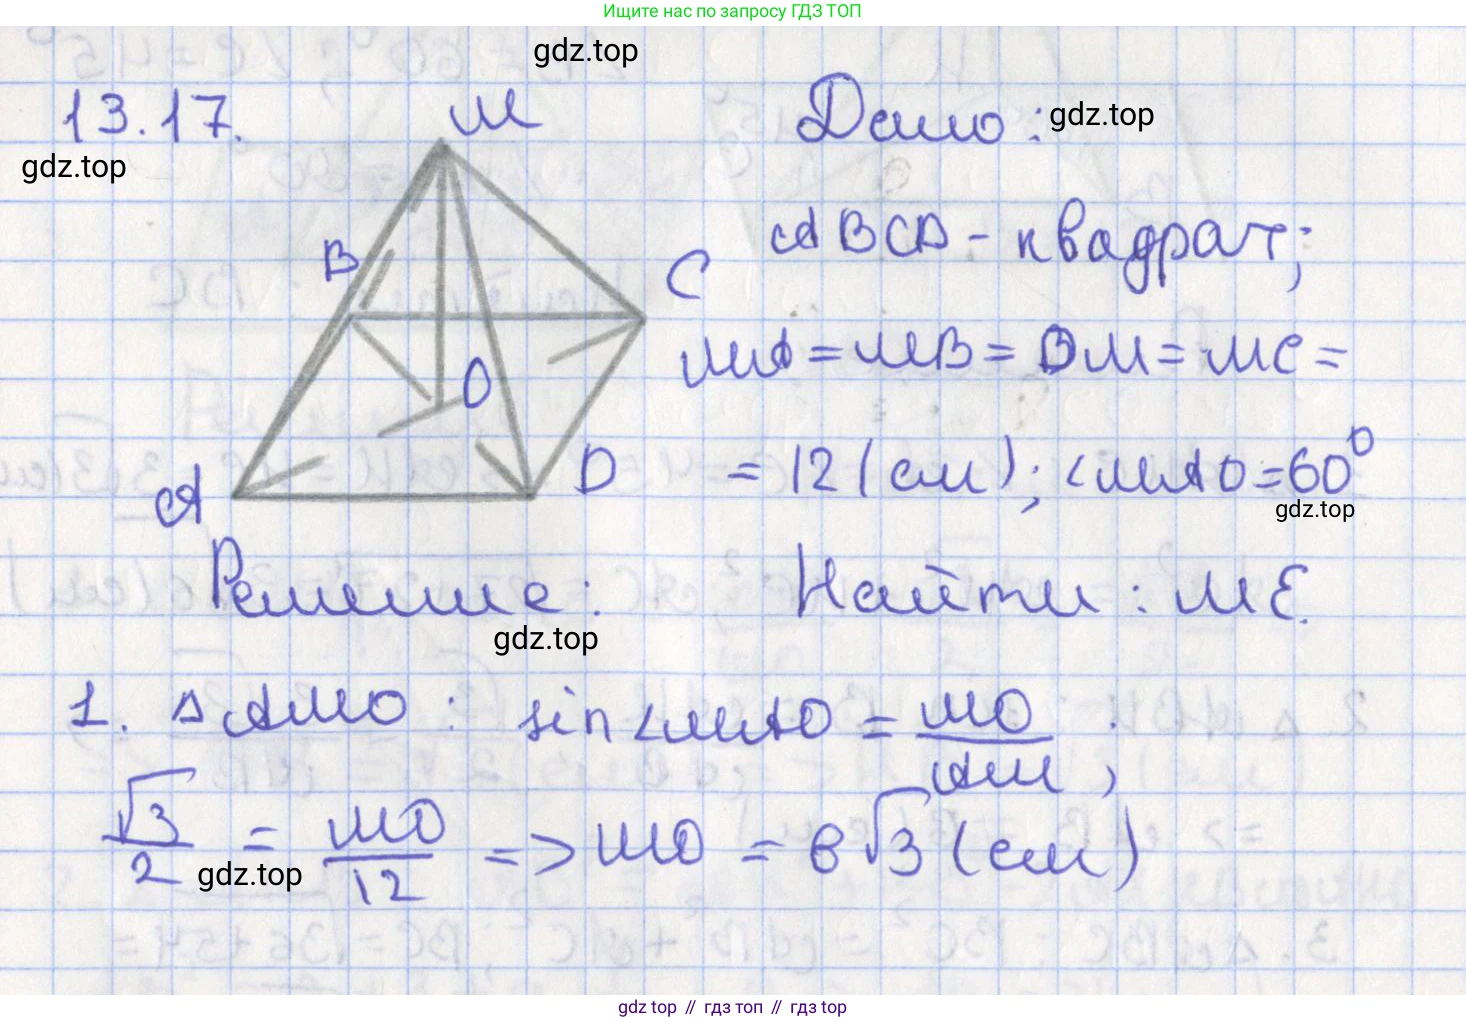 Ищите нас по запросу ГДЗ ТОП
gdz.top
13.17.
M
Дано:
gdz.top
gdz.top
ABCD - квадрат;
B
C
MA = MB = DM = MC =
O
= 12 (см); <MAO = 60°
A
D
gdz.top
Решение:
Найти: ME.
gdz.top
1. △AMO: sin<MAO = MO/AM;
√3/2 = MO/12 => MO = 6√3 (см)
gdz.top
gdz top // гдз топ // гдз top